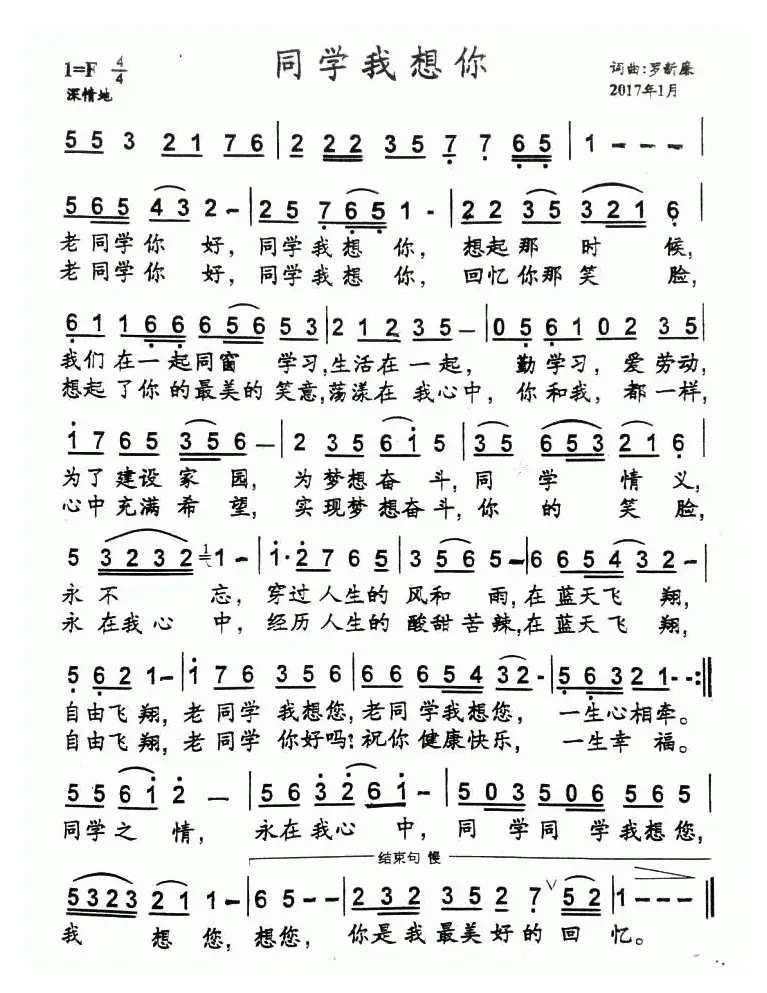 同学我想你
1=F 4/4
深情地
词曲:罗新廉
2017年1月
5 5 3 2 1 7 6 | 2 2 2 2 3 5 7 7 6 5 | 1 - - - |
5 6 5 4 3 2 - | 2 5 7 6 5 1 - | 2 2 3 5 3 2 1 6 |
老同学你 好, 同学我想 你, 想起那 时 候,
老同学你 好, 同学我想 你, 回忆你那笑 脸,
6 1 1 6 6 6 5 6 5 3 | 2 1 2 3 5 - | 0 5 6 1 0 2 3 5 |
我们在一起同窗 学习,生活在一起, 勤学习, 爱劳动,
想起了你的最美的笑意,荡漾在我心中, 你和我, 都一样,
1 7 6 5 3 5 6 - | 2 3 5 6 1 5 | 3 5 6 5 3 2 1 6 |
为了建设家 园, 为梦想奋 斗, 同 学 情 义,
心中充满希 望, 实现梦想奋斗, 你 的 笑 脸,
5 3 2 3 2 1 - | 1 · 2 7 6 5 | 3 5 6 5 - | 6 6 5 4 3 2 - |
永 不 忘, 穿过人生的 风和 雨,在蓝天飞 翔,
永在我心 中, 经历人生的 酸甜苦辣,在蓝天飞 翔,
5 6 2 1 - | 1 7 6 3 5 6 | 6 6 6 5 4 3 2 - | 5 6 3 2 1 - - :‖
自由飞翔,老同学 我想您,老同学我想您, 一生心相牵。
自由飞翔,老同学 你好吗?祝你健康快乐, 一生幸 福。
5 5 6 1 2 - | 5 6 3 2 6 1 - | 5 0 3 5 0 6 5 6 5 |
同学之 情, 永在我心 中, 同 学同 学我想您,
结束句 慢
5 3 2 3 2 1 1 - | 6 5 - - | 2 3 2 3 5 2 7 ∨ 5 2 | 1 - - - ‖
我 想 您, 想您, 你是我最美好的 回 忆。